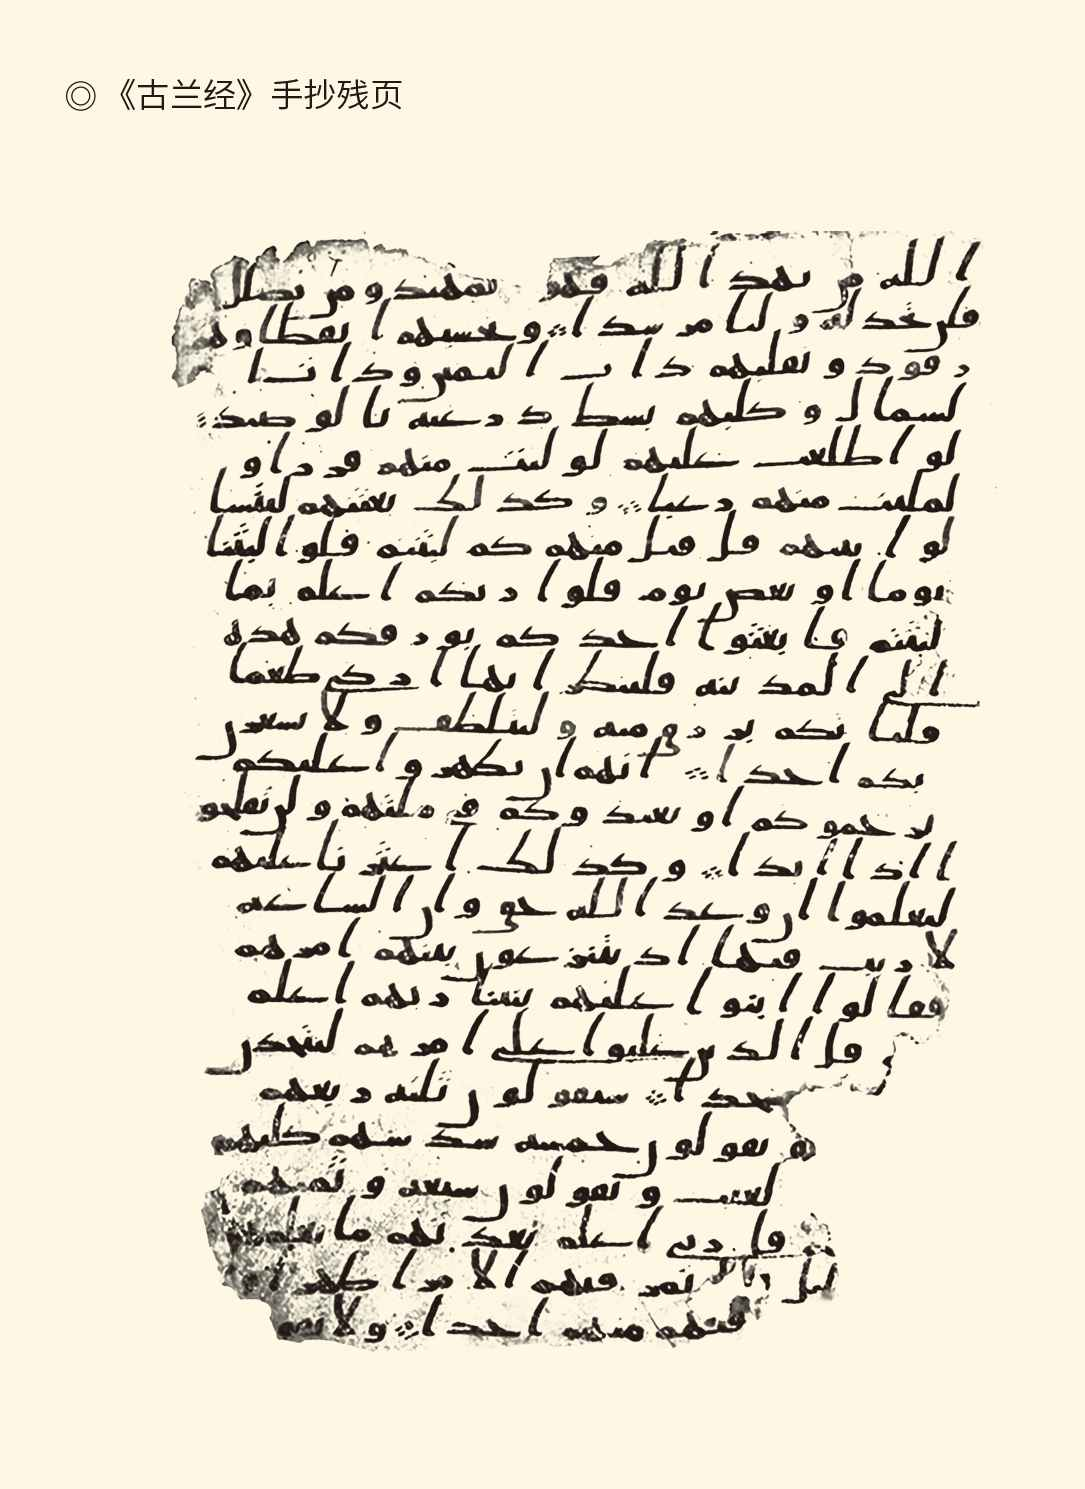 ◎《古兰经》手抄残页
الله من يهد الله فهو المهتد ومن يضلل
فلن تجد له وليا مرشدا وتحسبهم ايقظا وهم
رقود ونقلبهم ذات اليمين وذات ا
لشمال وكلبهم بسط ذرعيه بالوصيد
لو اطلعت عليهم لوليت منهم فررا و
لملئت منهم رعبا وكذلك بعثنهم ليتسا
لوا بينهم قل قئل منهم كم لبثتم قلوا لبثنا
يوما او بعض يوم قلوا ربكم اعلم بما
لبثتم فابعثوا احدكم بورقكم هذه
الى المدينه فلينظر ايها ازكى طعما
فلياتكم برزق منه وليتلطف ولا يشعرن
بكم احدا انهم ان يظهروا عليكم
يرجموكم او يعيدوكم في ملتهم ولن تفلحو
ا اذا ابدا وكذلك اعثرنا عليهم
ليعلموا ان وعد الله حق وان الساعه
لا ريب فيها اذ يتنزعون بينهم امرهم
فقالوا ابنوا عليهم بنينا ربهم اعلم
قل الذين غلبوا على امرهم لنتخذن
سيقولون ثلثه ربعهم
يقولون خمسه سدسهم كلبهم
لغيب ويقولون سبعه وثمنهم
قل ربي اعلم بعدتهم ما يعلمهم
تمر فيهم الا مرا ظهرا
فيهم منهم احدا ولا تقو